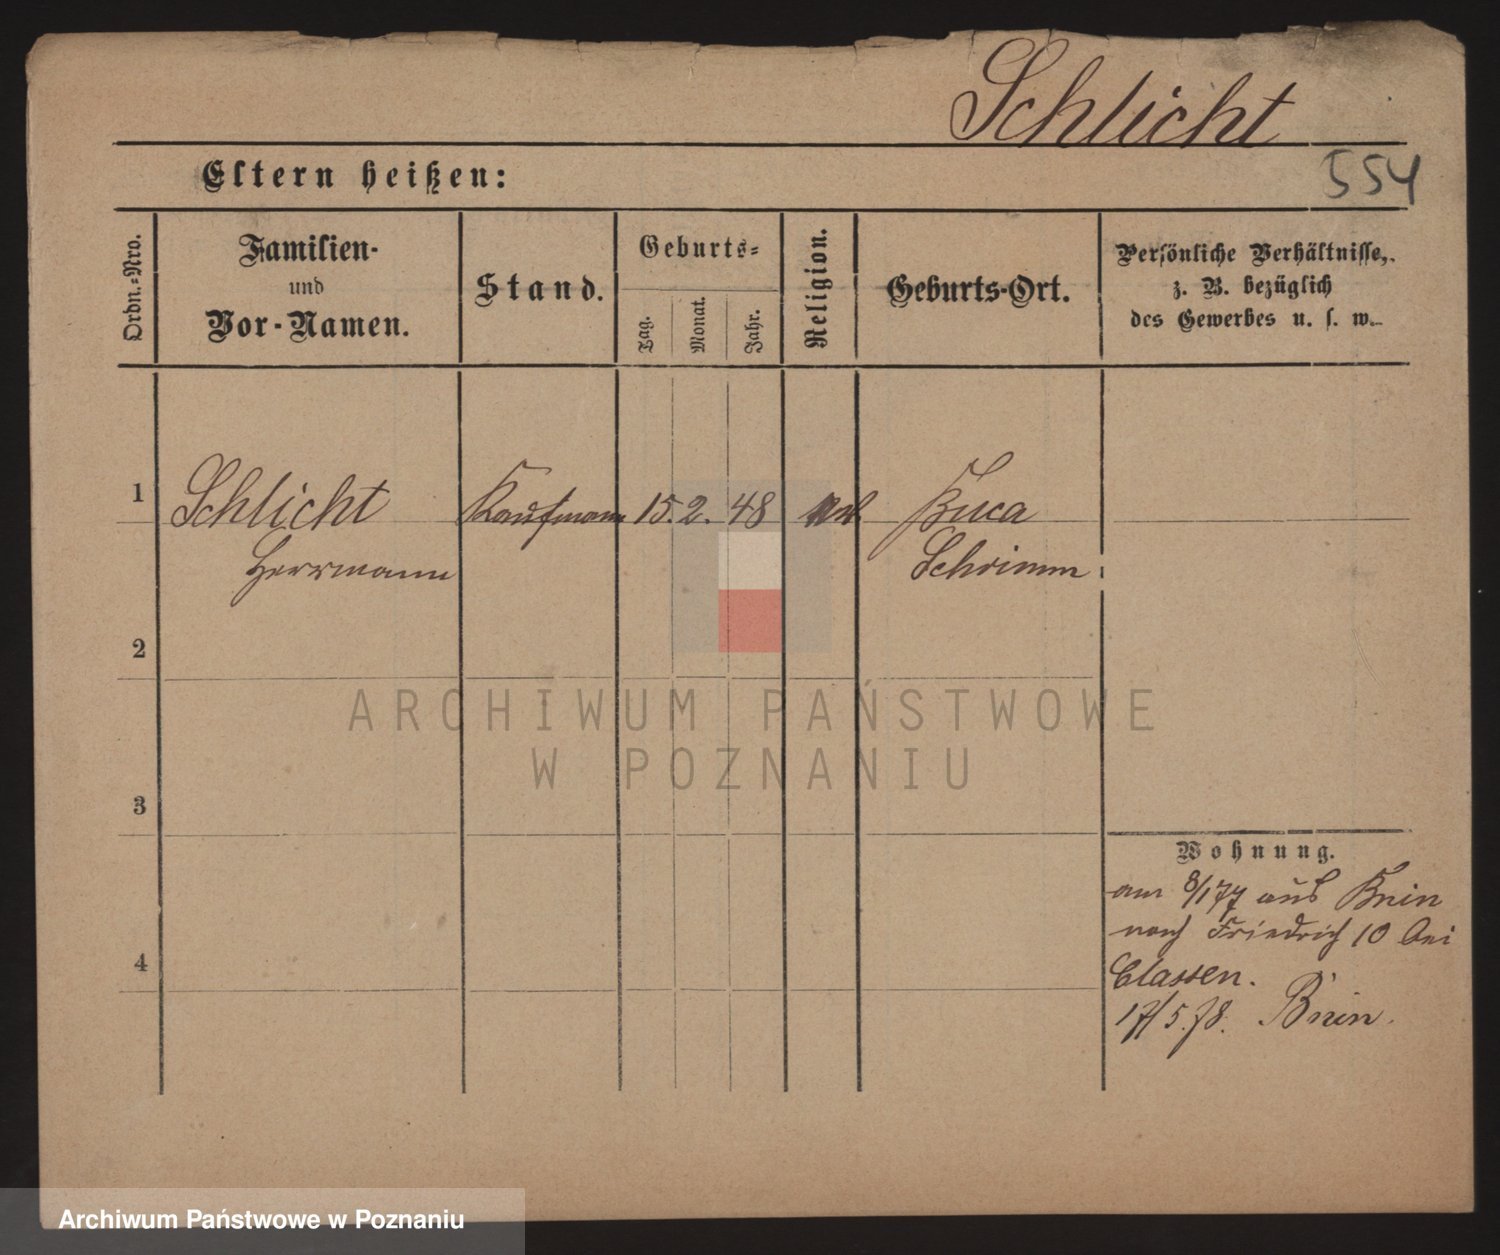 Schlicht
554
Eltern heißen:
Ordn.-Nro.
Familien-
und
Vor-Namen.
Stand.
Geburts-
Tag.
Monat.
Jahr.
Religion.
Geburts-Ort.
Persönliche Verhältnisse,
z. B. bezüglich
des Gewerbes u. s. w.
1
Schlicht
Kaufmann
15. 2. 48
Herrmann
Schrimm
2
3
4
Wohnung.
am 8/1 77 aus Bnin
nach Friedrich 10 bei
Classen.
17/5.78. Bnin.
ARCHIWUM PAŃSTWOWE
W POZNANIU
Archiwum Państwowe w Poznaniu